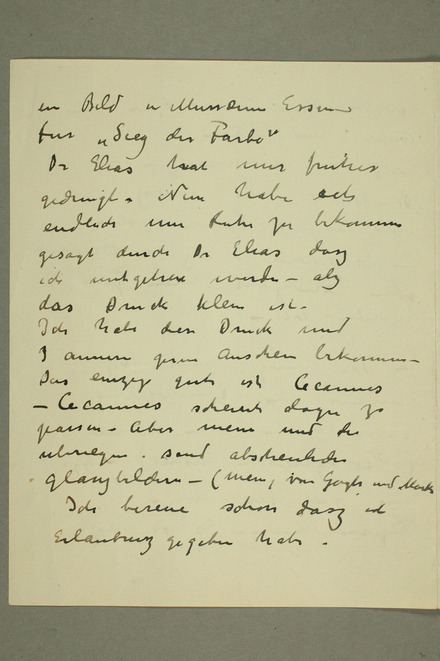 ein Bild in Musseum Essen
fur „Sieg der Farbe"
Dr Elias hat mir früher
gedrengt. Nun habe ich
endlich um Ruhe zu bekommen
gesagt durch Dr Elias dasz
ich mitgehen werde – als
das Druck klein ist.
Ich habe den Druck und
3 annern gesen bekommen –
Das einzig gute ist Cecannes
– Cecannes scheint dazu zu
passen – Aber mein und die
ubriegen sind abscheuliche
glanzbilder – (mein, van Gogh, und Munch
Ich bereue schon dasz ich
Erlaubnisz gegeben habe.